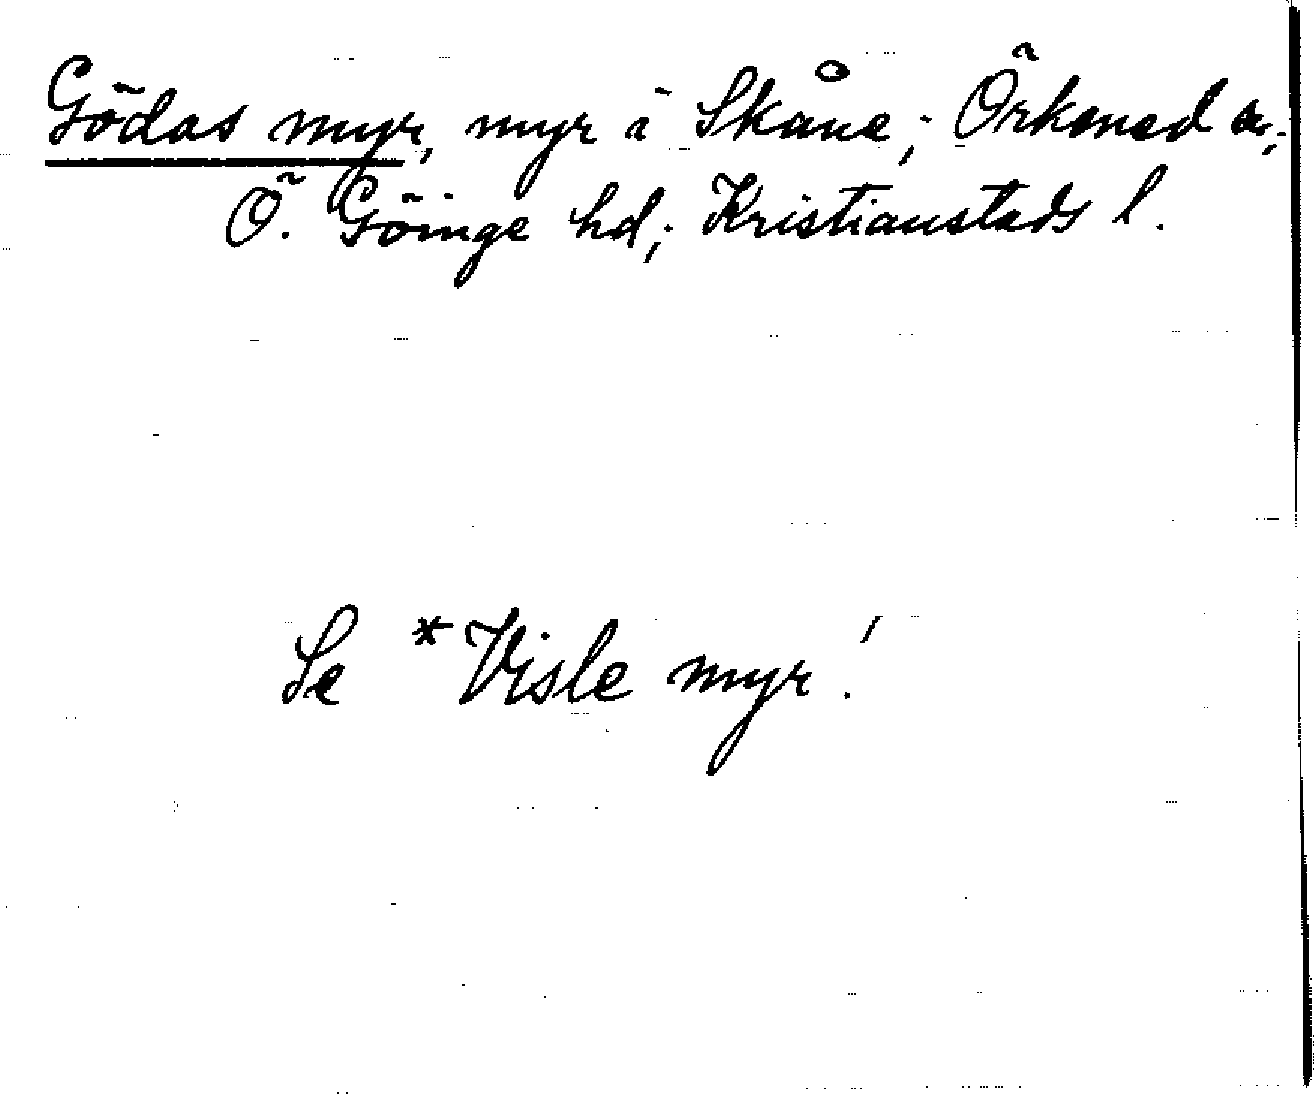 Gödas myr, myr i Skåne; Örkened sn;
Ö. Göinge hd; Kristianstads l.
Se *Visle myr!